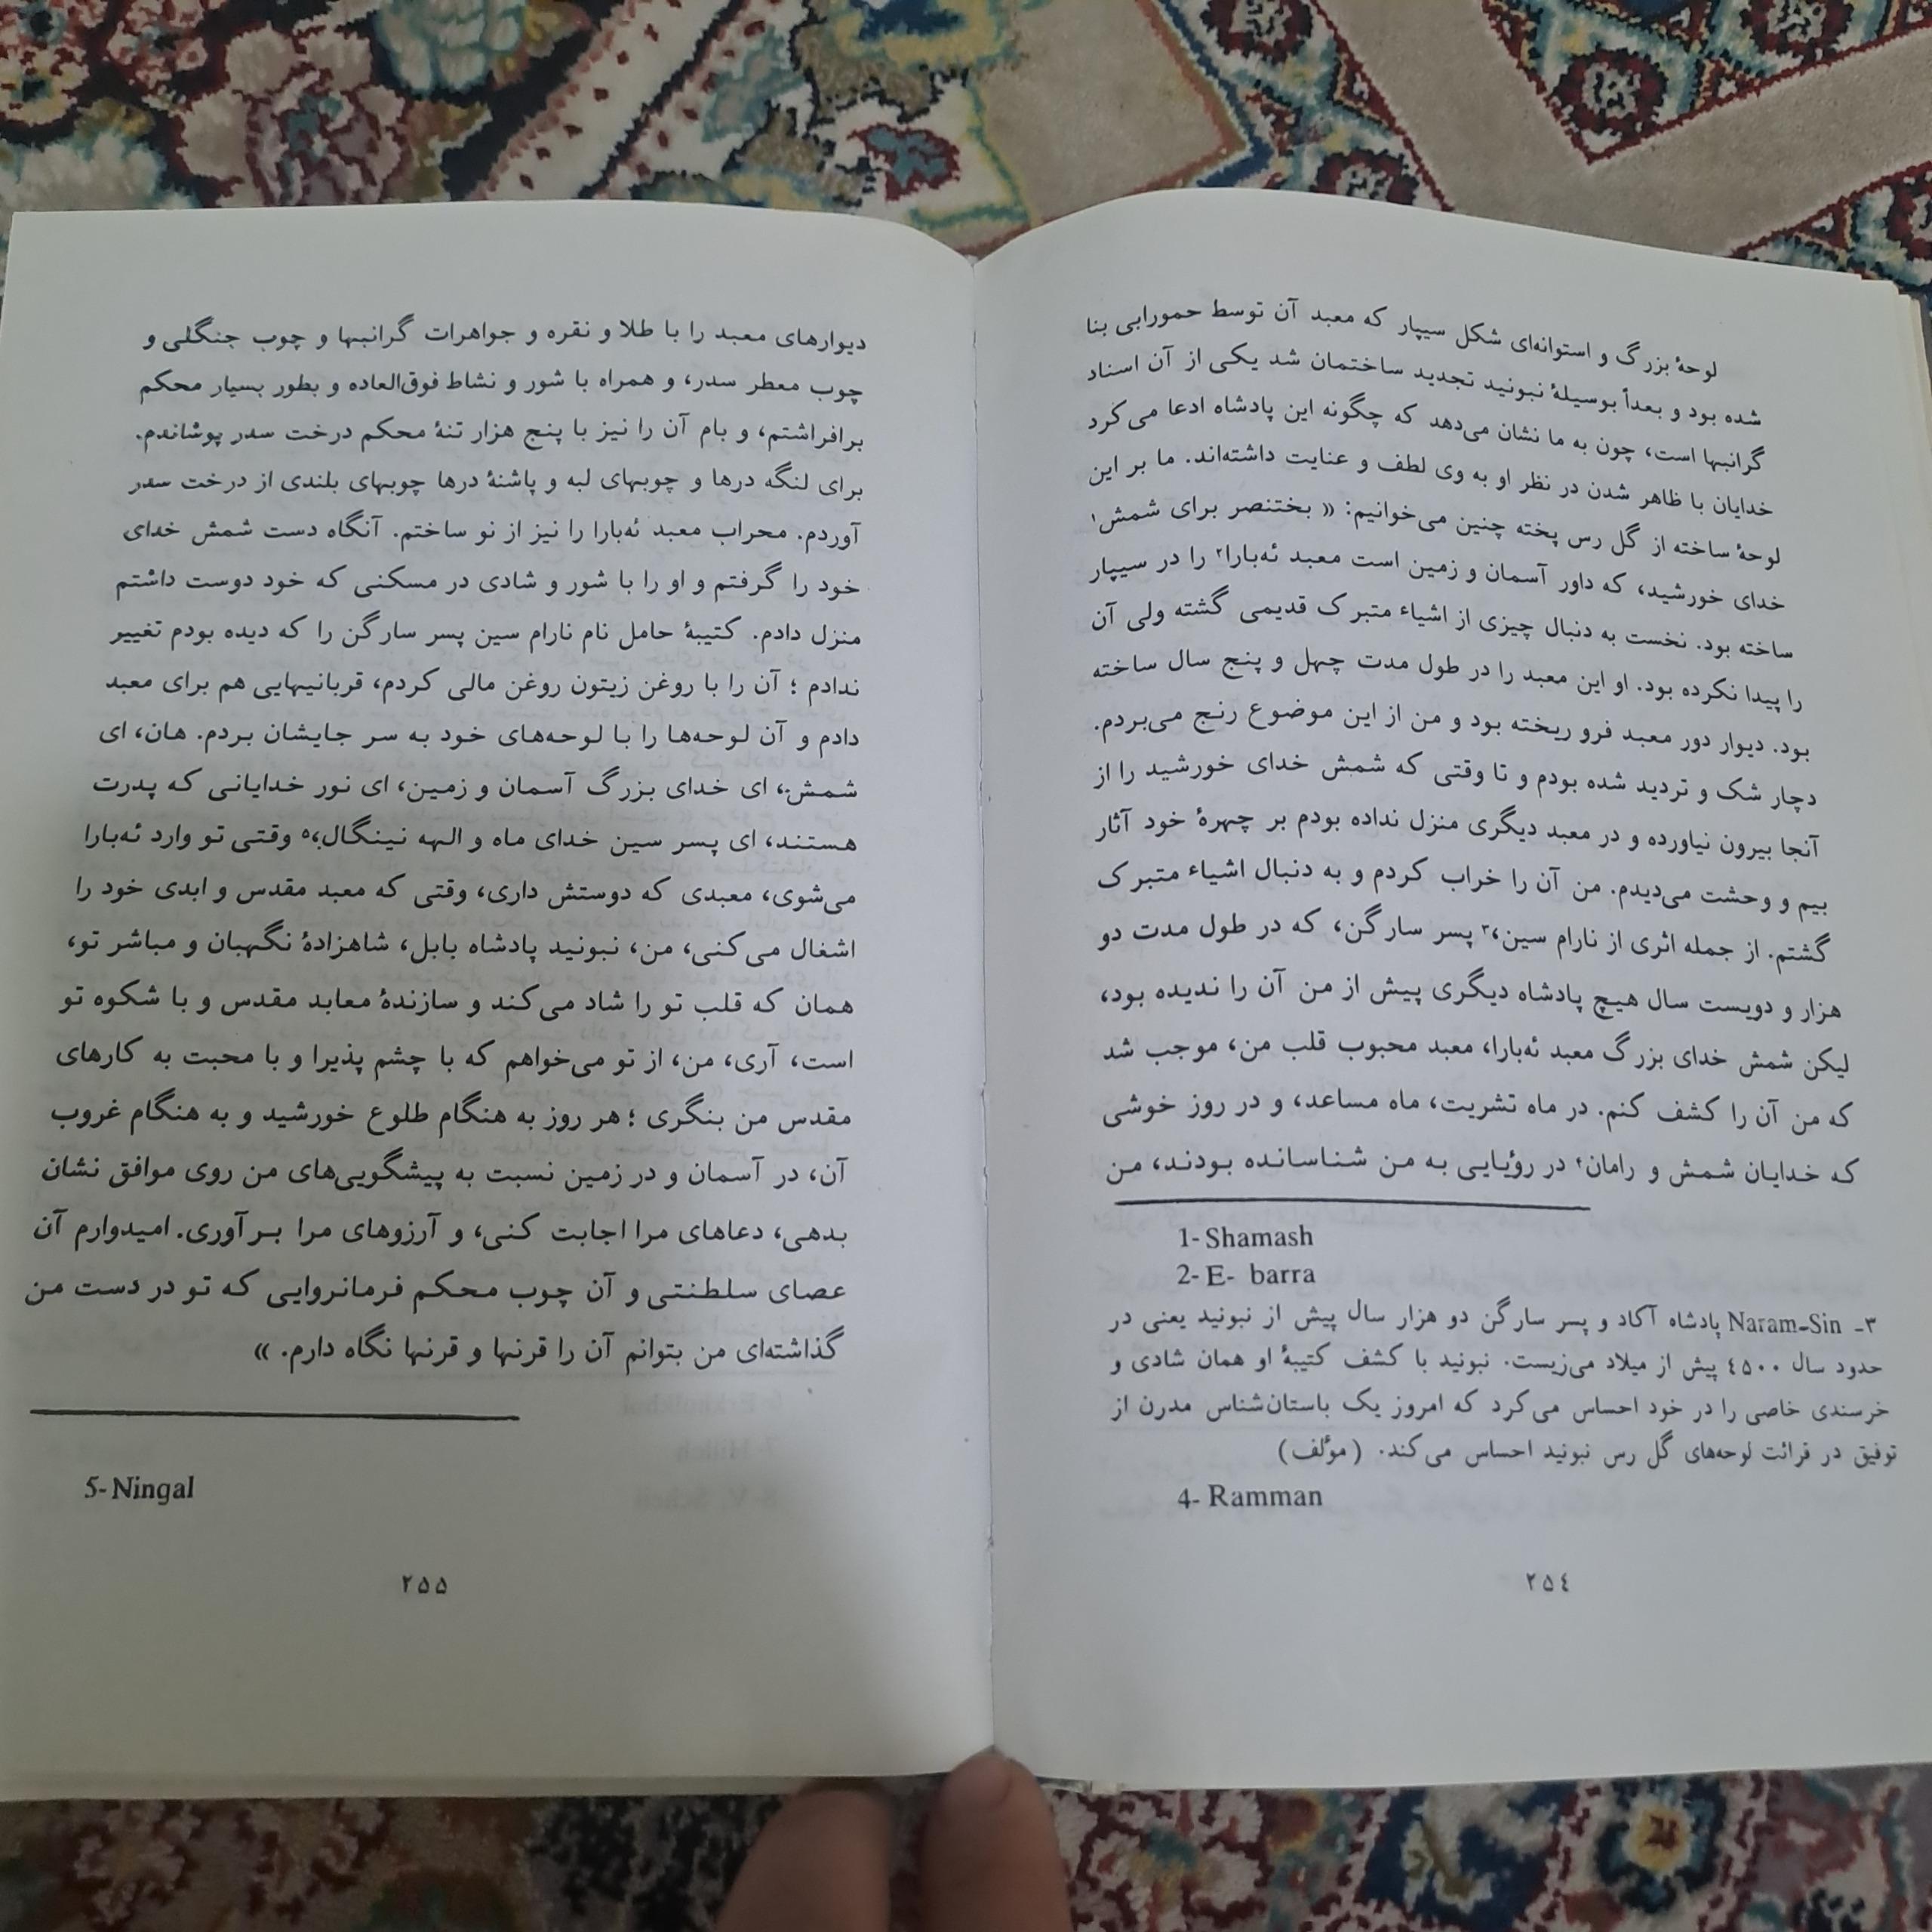 لوحهٔ بزرگ و استوانه‌ای شکل سیپار که معبد آن توسط حمورابی بنا
شده بود و بعداً بوسیلهٔ نبونید تجدید ساختمان شد یکی از آن اسناد
گرانبها است، چون به ما نشان می‌دهد که چگونه این پادشاه ادعا می‌کرد
خدایان با ظاهر شدن در نظر او به وی لطف و عنایت داشته‌اند. ما بر این
لوحهٔ ساخته از گل رس پخته چنین می‌خوانیم: « بختنصر برای شمش۱
خدای خورشید، که داور آسمان و زمین است معبد ئه‌بارا۲ را در سیپار
ساخته بود. نخست به دنبال چیزی از اشیاء متبرک قدیمی گشته ولی آن
را پیدا نکرده بود. او این معبد را در طول مدت چهل و پنج سال ساخته
بود. دیوار دور معبد فرو ریخته بود و من از این موضوع رنج می‌بردم.
دچار شک و تردید شده بودم و تا وقتی که شمش خدای خورشید را از
آنجا بیرون نیاورده و در معبد دیگری منزل نداده بودم بر چهرهٔ خود آثار
بیم و وحشت می‌دیدم. من آن را خراب کردم و به دنبال اشیاء متبرک
گشتم. از جمله اثری از نارام سین،۳ پسر سارگن، که در طول مدت دو
هزار و دویست سال هیچ پادشاه دیگری پیش از من آن را ندیده بود،
لیکن شمش خدای بزرگ معبد ئه‌بارا، معبد محبوب قلب من، موجب شد
که من آن را کشف کنم. در ماه تشریت، ماه مساعد، و در روز خوشی
که خدایان شمش و رامان۴ در رؤیایی به من شناسانده بودند، من
1- Shamash
2- E- barra
۳- Naram-Sin پادشاه آکاد و پسر سارگن دو هزار سال پیش از نبونید یعنی در
حدود سال ۴۵۰۰ پیش از میلاد می‌زیست. نبونید با کشف کتیبهٔ او همان شادی و
خرسندی خاصی را در خود احساس می‌کرد که امروز یک باستان‌شناس مدرن از
توفیق در قرائت لوحه‌های گل رس نبونید احساس می‌کند. (مؤلف)
4- Ramman
۲۵۴
دیوارهای معبد را با طلا و نقره و جواهرات گرانبها و چوب جنگلی و
چوب معطر سدر، و همراه با شور و نشاط فوق‌العاده و بطور بسیار محکم
برافراشتم، و بام آن را نیز با پنج هزار تنهٔ محکم درخت سدر پوشاندم.
برای لنگه درها و چوبهای لبه و پاشنهٔ درها چوبهای بلندی از درخت سدر
آوردم. محراب معبد ئه‌بارا را نیز از نو ساختم. آنگاه دست شمش خدای
خود را گرفتم و او را با شور و شادی در مسکنی که خود دوست داشتم
منزل دادم. کتیبهٔ حامل نام نارام سین پسر سارگن را که دیده بودم تغییر
ندادم ؛ آن را با روغن زیتون روغن مالی کردم، قربانیهایی هم برای معبد
دادم و آن لوحه‌ها را با لوحه‌های خود به سر جایشان بردم. هان، ای
شمش، ای خدای بزرگ آسمان و زمین، ای نور خدایانی که پدرت
هستند، ای پسر سین خدای ماه و الهه نینگال،۵ وقتی تو وارد ئه‌بارا
می‌شوی، معبدی که دوستش داری، وقتی که معبد مقدس و ابدی خود را
اشغال می‌کنی، من، نبونید پادشاه بابل، شاهزادهٔ نگهبان و مباشر تو،
همان که قلب تو را شاد می‌کند و سازندهٔ معابد مقدس و با شکوه تو
است، آری، من، از تو می‌خواهم که با چشم پذیرا و با محبت به کارهای
مقدس من بنگری ؛ هر روز به هنگام طلوع خورشید و به هنگام غروب
آن، در آسمان و در زمین نسبت به پیشگویی‌های من روی موافق نشان
بدهی، دعاهای مرا اجابت کنی، و آرزوهای مرا برآوری. امیدوارم آن
عصای سلطنتی و آن چوب محکم فرمانروایی که تو در دست من
گذاشته‌ای من بتوانم آن را قرنها و قرنها نگاه دارم. »
5- Ningal
۲۵۵